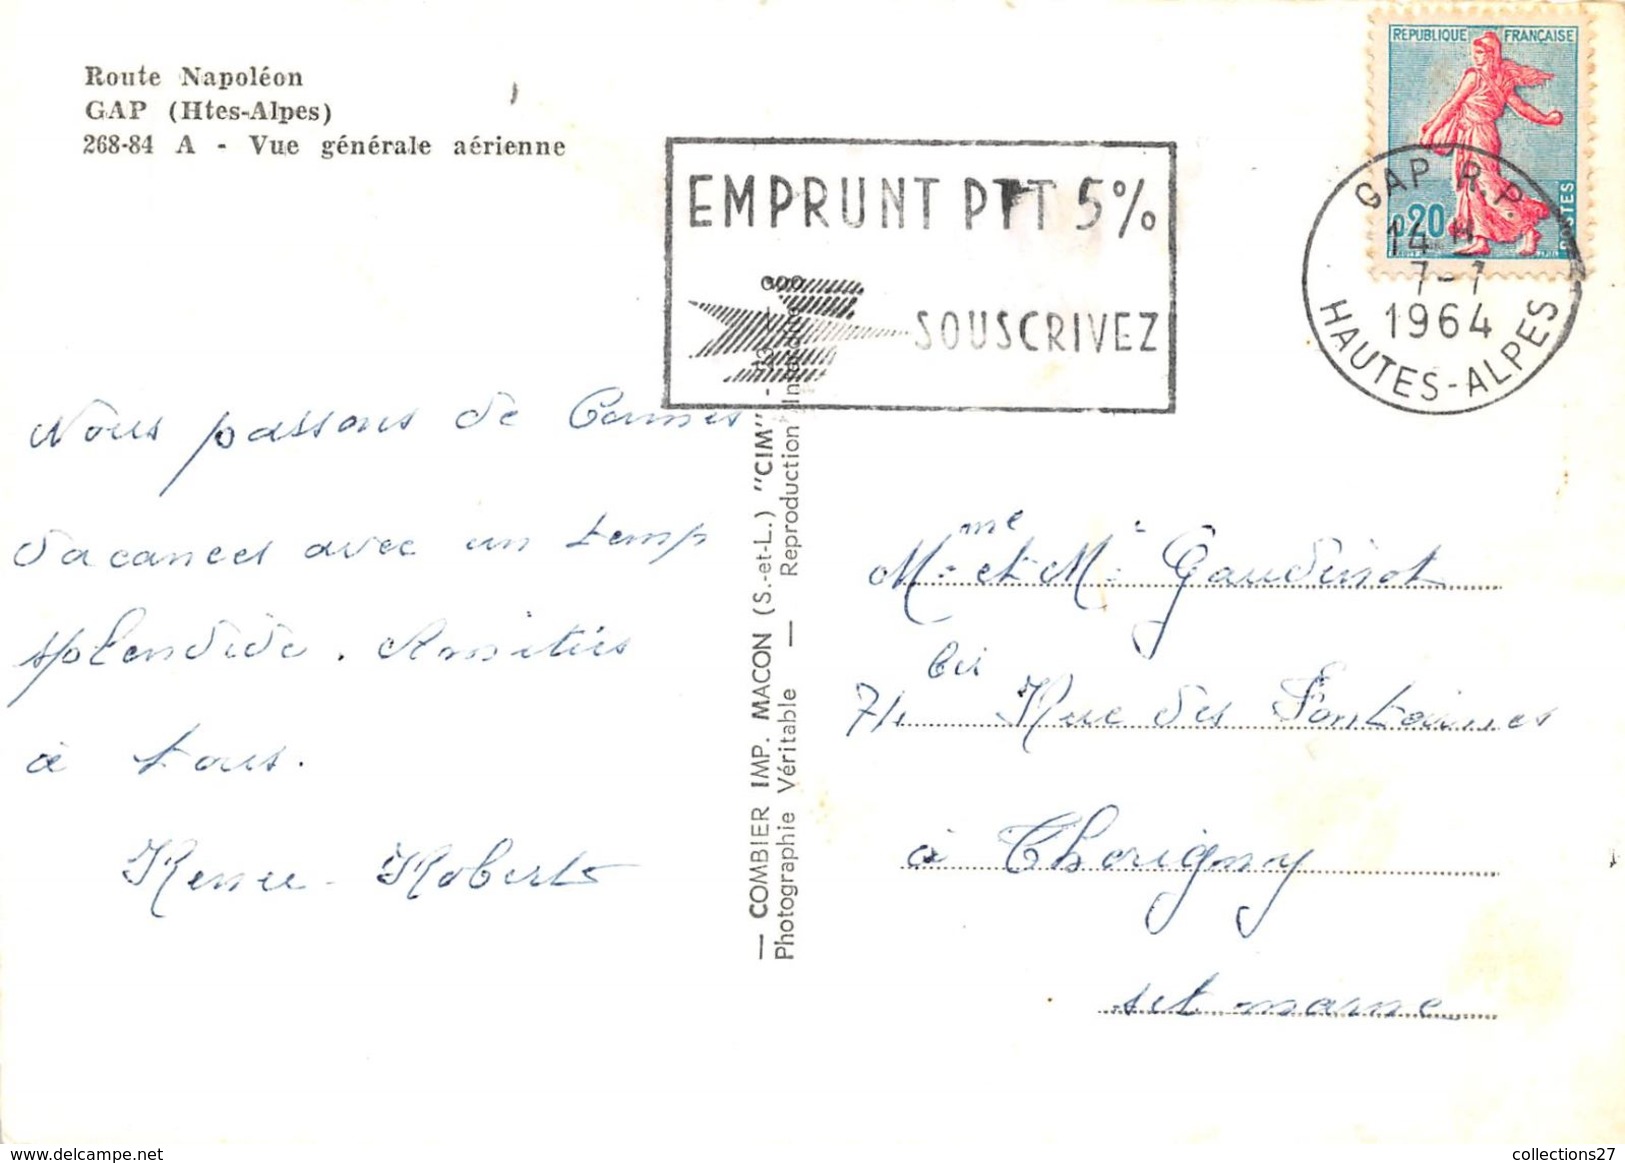 Route Napoléon
GAP (Htes-Alpes)
268-84 A - Vue générale aérienne
EMPRUNT PTT 5%
SOUSCRIVEZ
REPUBLIQUE FRANÇAISE
0,20
POSTES
GAP R.P.
14 H
7-7
1964
HAUTES-ALPES
Nous passons de Bonnes
vacances avec un temp
splendide. Amitiés
à tous.
Renee - Roberts
— COMBIER IMP. MACON (S.-et-L.) "CIM" -
Photographie Véritable — Reproduction Interdite
Mme et Mr Gaudinot
74 bis Rue des Fontaines
à Thorigny
set marne
www.delcampe.net
collections27